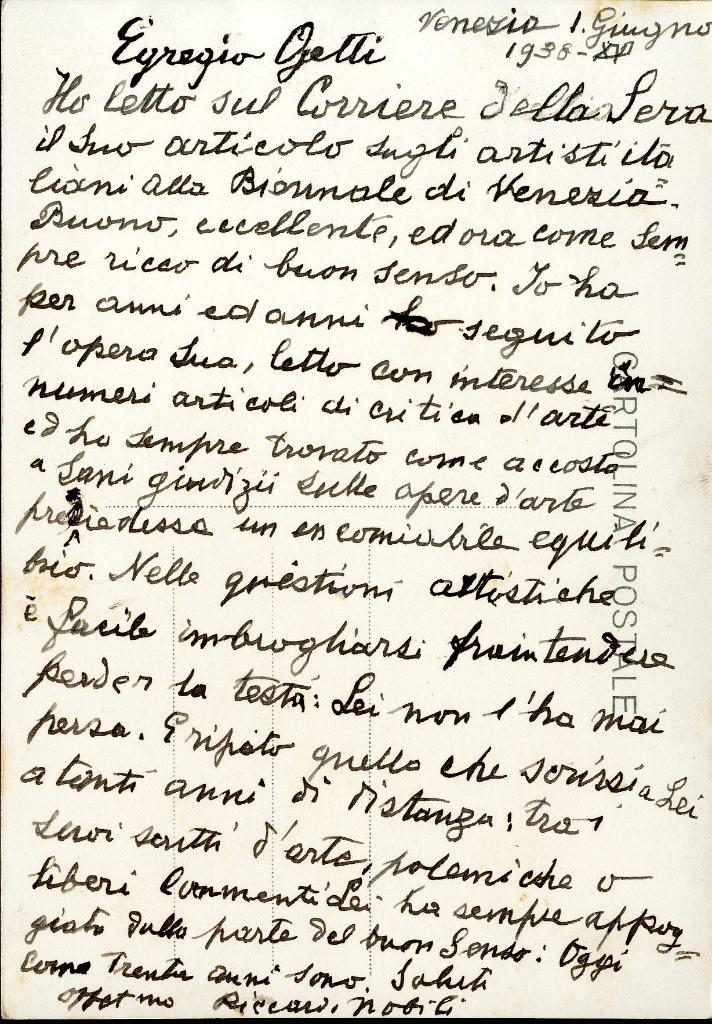 Venezia 1. Giugno
1938-XVI
Egregio Ojetti
Ho letto sul Corriere della Sera
il suo articolo sugli artisti ita
liani alla Biennale di Venezia-
Buono, eccellente, ed ora come sem=
pre ricco di buon senso. Io ho
per anni ed anni seguito
l'opera sua, letto con interesse in=
numeri articoli di critica d'arte
ed ho sempre trovato come accosto
a sani giudizii sulle opere d'arte
presiedesse un encomiabile equili=
brio. Nelle questioni artistiche
è facile imbrogliarsi fraintendere
perder la testa: Lei non l'ha mai
persa. E ripeto quello che scrissi a Lei
a tanti anni di distanza: tra i
suoi scritti d'arte, polemiche o
liberi commenti Lei ha sempre appog=
giato dalla parte del buon senso: Oggi
come trenta anni sono. Saluti
Riccardo Nobili
CARTOLINA POSTALE